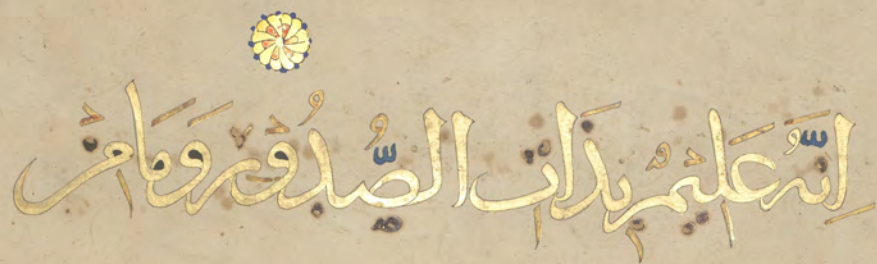 اِنَّهُ عَلِيمٌ بِذَاتِ الصُّدُورِ وَمَا مِنْ